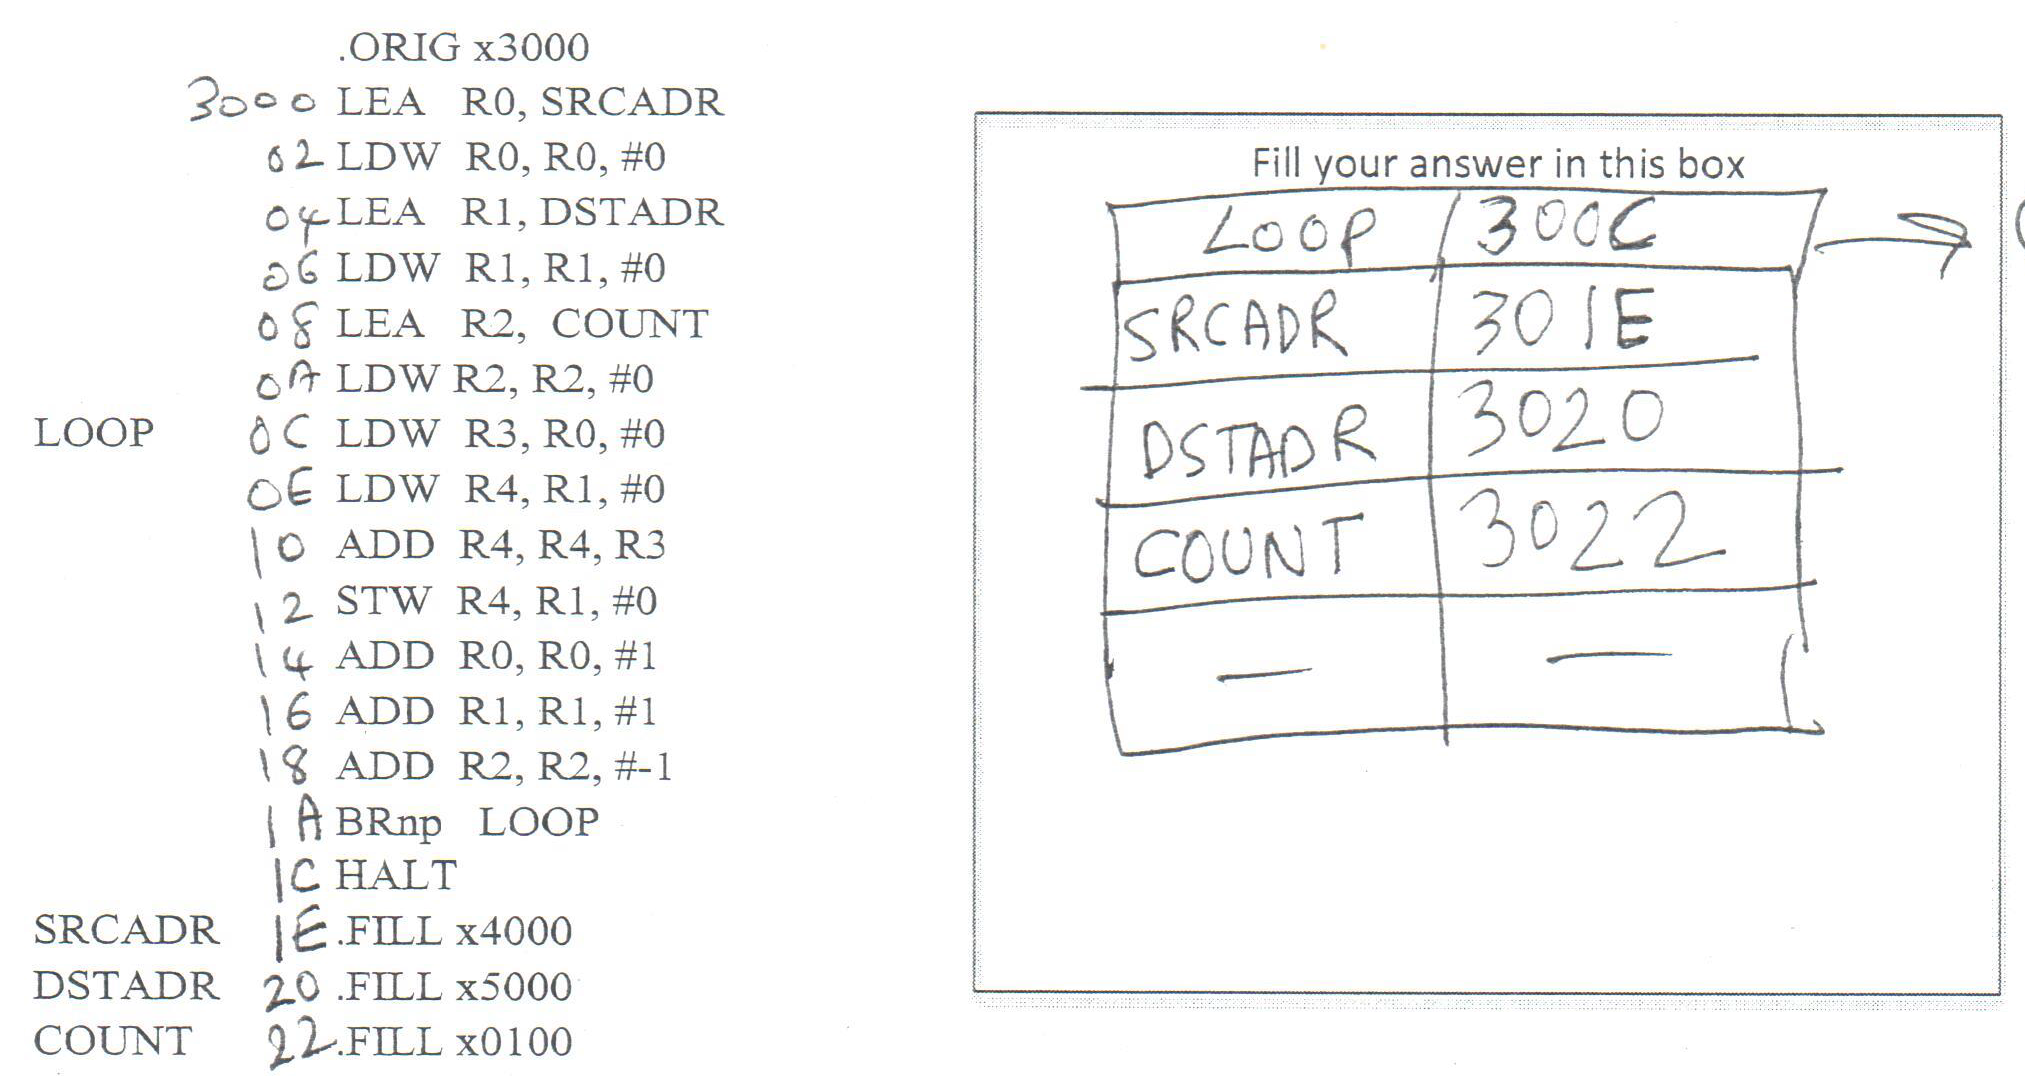 .ORIG x3000
3000 LEA R0, SRCADR
02 LDW R0, R0, #0
04 LEA R1, DSTADR
06 LDW R1, R1, #0
08 LEA R2, COUNT
0A LDW R2, R2, #0
LOOP 0C LDW R3, R0, #0
0E LDW R4, R1, #0
10 ADD R4, R4, R3
12 STW R4, R1, #0
14 ADD R0, R0, #1
16 ADD R1, R1, #1
18 ADD R2, R2, #-1
1A BRnp LOOP
1C HALT
SRCADR 1E .FILL x4000
DSTADR 20 .FILL x5000
COUNT 22 .FILL x0100
Fill your answer in this box
LOOP 300C
SRCADR 301E
DSTADR 3020
COUNT 3022
— —